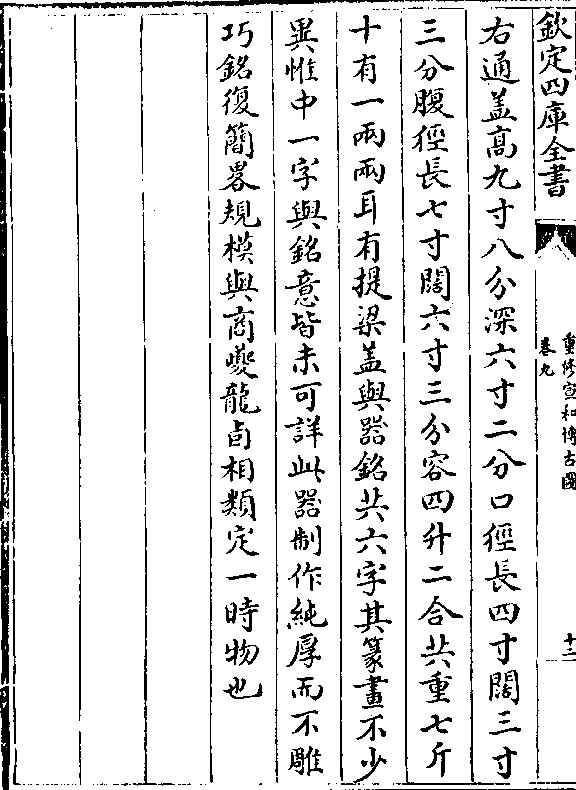 欽定四庫全書
重修宣和博古圖
卷九
十二
右通盖髙九寸八分深六寸二分口徑長四寸闊三寸
三分腹徑長七寸闊六寸三分容四升二合共重七斤
十有一兩兩耳有提梁盖與器銘共六字其篆畫不少
異惟中一字與銘意皆未可詳此器制作純厚而不雕
巧銘復簡畧規模與商夔龍卣相類定一時物也